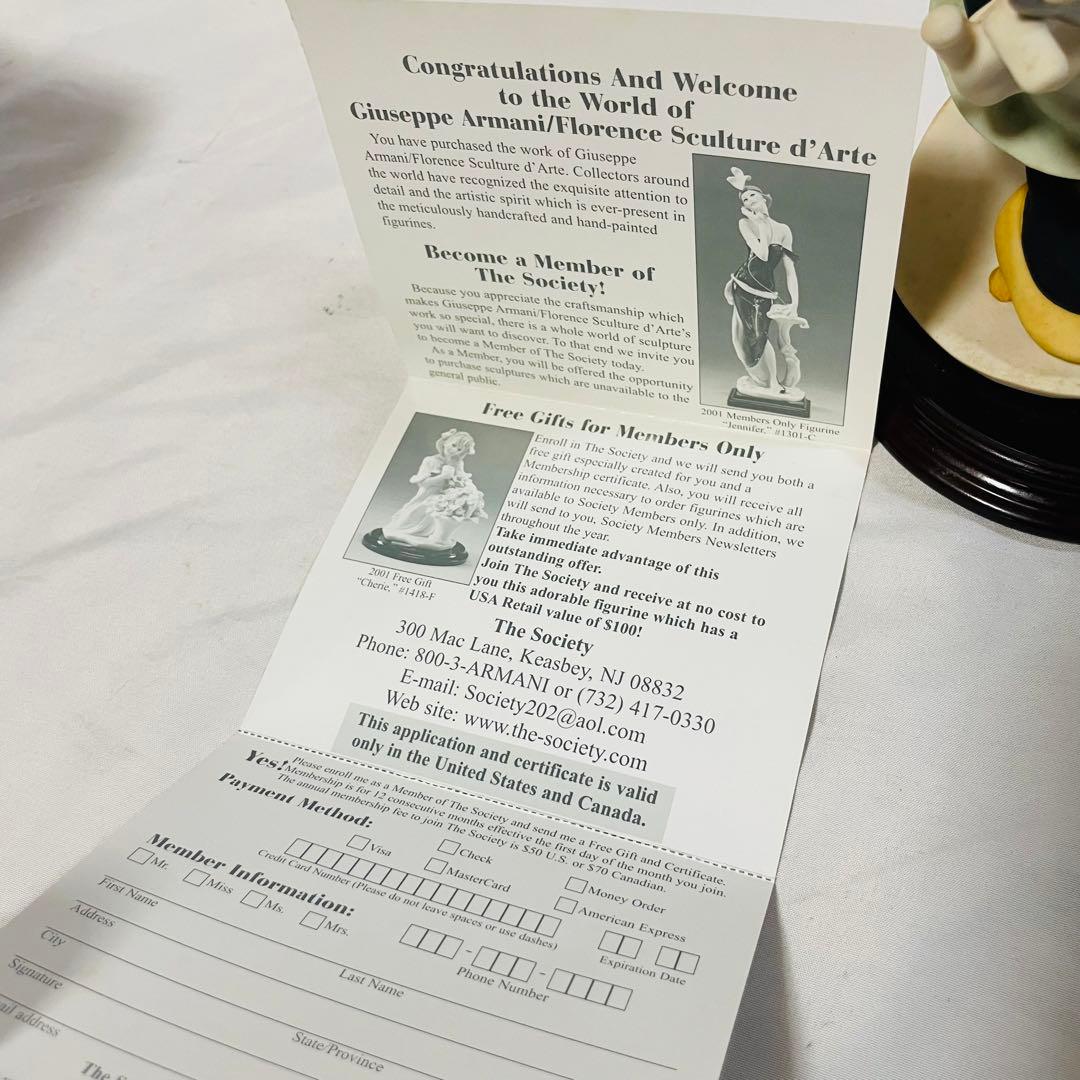 Congratulations And Welcome
to the World of
Giuseppe Armani/Florence Sculture d'Arte
You have purchased the work of Giuseppe
Armani/Florence Sculture d'Arte. Collectors around
the world have recognized the exquisite attention to
detail and the artistic spirit which is ever-present in
the meticulously handcrafted and hand-painted
figurines.
Become a Member of
The Society!
Because you appreciate the craftsmanship which
makes Giuseppe Armani/Florence Sculture d'Arte's
work so special, there is a whole world of sculpture
you will want to discover. To that end we invite you
to become a Member of The Society today.
As a Member, you will be offered the opportunity
to purchase sculptures which are unavailable to the
general public.
2001 Members Only Figurine
"Jennifer," #1301-C
Free Gifts for Members Only
Enroll in The Society and we will send you both a
free gift especially created for you and a
Membership certificate. Also, you will receive all
information necessary to order figurines which are
available to Society Members only. In addition, we
will send to you, Society Members Newsletters
throughout the year.
Take immediate advantage of this
outstanding offer.
Join The Society and receive at no cost to
you this adorable figurine which has a
USA Retail value of $100!
2001 Free Gift
"Cherie," #1418-F
The Society
300 Mac Lane, Keasbey, NJ 08832
Phone: 800-3-ARMANI or (732) 417-0330
E-mail: Society202@aol.com
Web site: www.the-society.com
This application and certificate is valid
only in the United States and Canada.
Yes! Please enroll me as a Member of The Society and send me a Free Gift and Certificate.
Membership is for 12 consecutive months effective the first day of the month you join.
The annual membership fee to join The Society is $50 U.S. or $70 Canadian.
Payment Method:
Visa
Check
Money Order
MasterCard
American Express
Credit Card Number (Please do not leave spaces or use dashes)
Expiration Date
Member Information:
Mr.
Miss
Ms.
Mrs.
Phone Number
First Name
Last Name
Address
City
State/Province
Signature
ail address
The